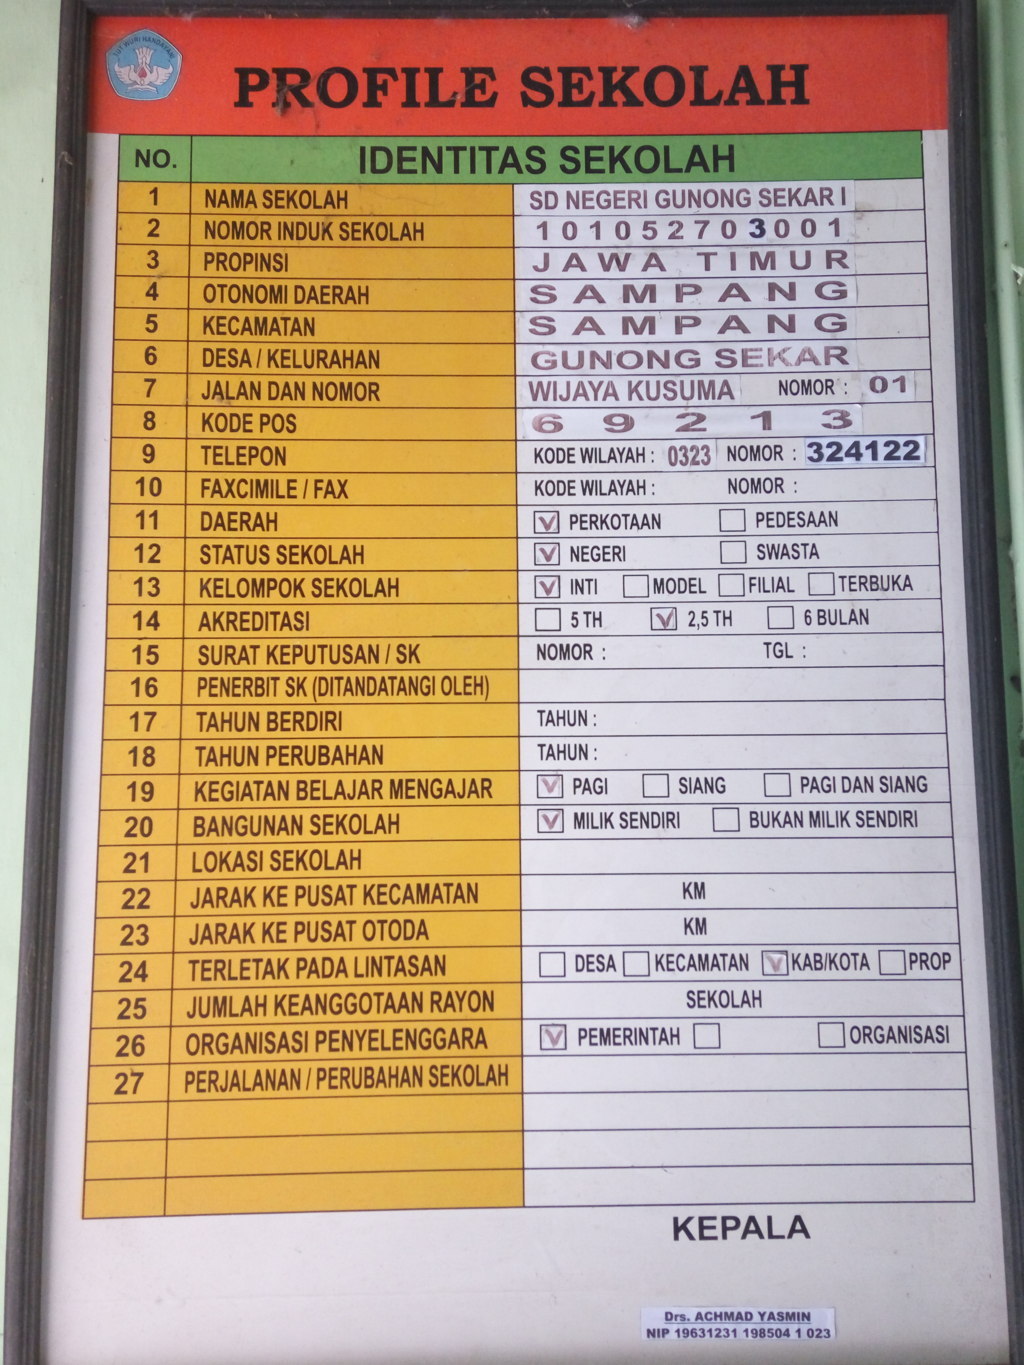 TUT WURI HANDAYANI
PROFILE SEKOLAH
NO. IDENTITAS SEKOLAH
1 NAMA SEKOLAH SD NEGERI GUNONG SEKAR I
2 NOMOR INDUK SEKOLAH 101052703001
3 PROPINSI JAWA TIMUR
4 OTONOMI DAERAH SAMPANG
5 KECAMATAN SAMPANG
6 DESA / KELURAHAN GUNONG SEKAR
7 JALAN DAN NOMOR WIJAYA KUSUMA NOMOR : 01
8 KODE POS 69213
9 TELEPON KODE WILAYAH : 0323 NOMOR : 324122
10 FAXCIMILE / FAX KODE WILAYAH : NOMOR :
11 DAERAH V PERKOTAAN PEDESAAN
12 STATUS SEKOLAH V NEGERI SWASTA
13 KELOMPOK SEKOLAH V INTI MODEL FILIAL TERBUKA
14 AKREDITASI 5 TH V 2,5 TH 6 BULAN
15 SURAT KEPUTUSAN / SK NOMOR : TGL :
16 PENERBIT SK (DITANDATANGI OLEH)
17 TAHUN BERDIRI TAHUN :
18 TAHUN PERUBAHAN TAHUN :
19 KEGIATAN BELAJAR MENGAJAR V PAGI SIANG PAGI DAN SIANG
20 BANGUNAN SEKOLAH V MILIK SENDIRI BUKAN MILIK SENDIRI
21 LOKASI SEKOLAH
22 JARAK KE PUSAT KECAMATAN KM
23 JARAK KE PUSAT OTODA KM
24 TERLETAK PADA LINTASAN DESA KECAMATAN V KAB/KOTA PROP
25 JUMLAH KEANGGOTAAN RAYON SEKOLAH
26 ORGANISASI PENYELENGGARA V PEMERINTAH ORGANISASI
27 PERJALANAN / PERUBAHAN SEKOLAH
KEPALA
Drs. ACHMAD YASMIN
NIP 19631231 198504 1 023